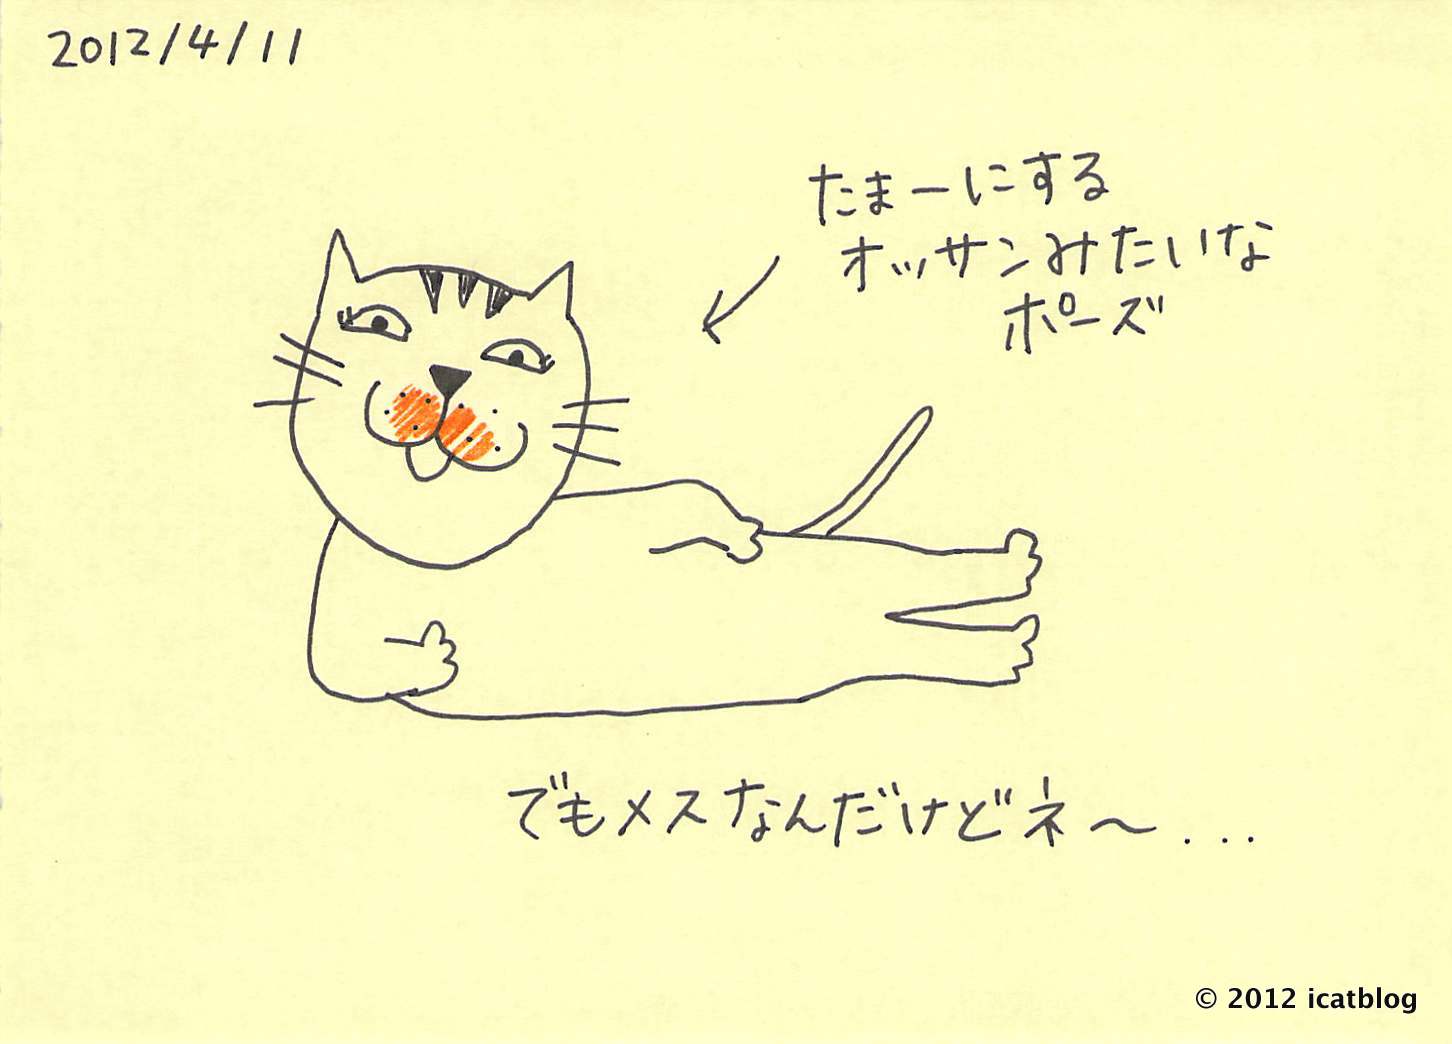 2012/4/11
たまーにする
オッサンみたいな
ポーズ
でもメスなんだけどネ〜...
© 2012 icatblog